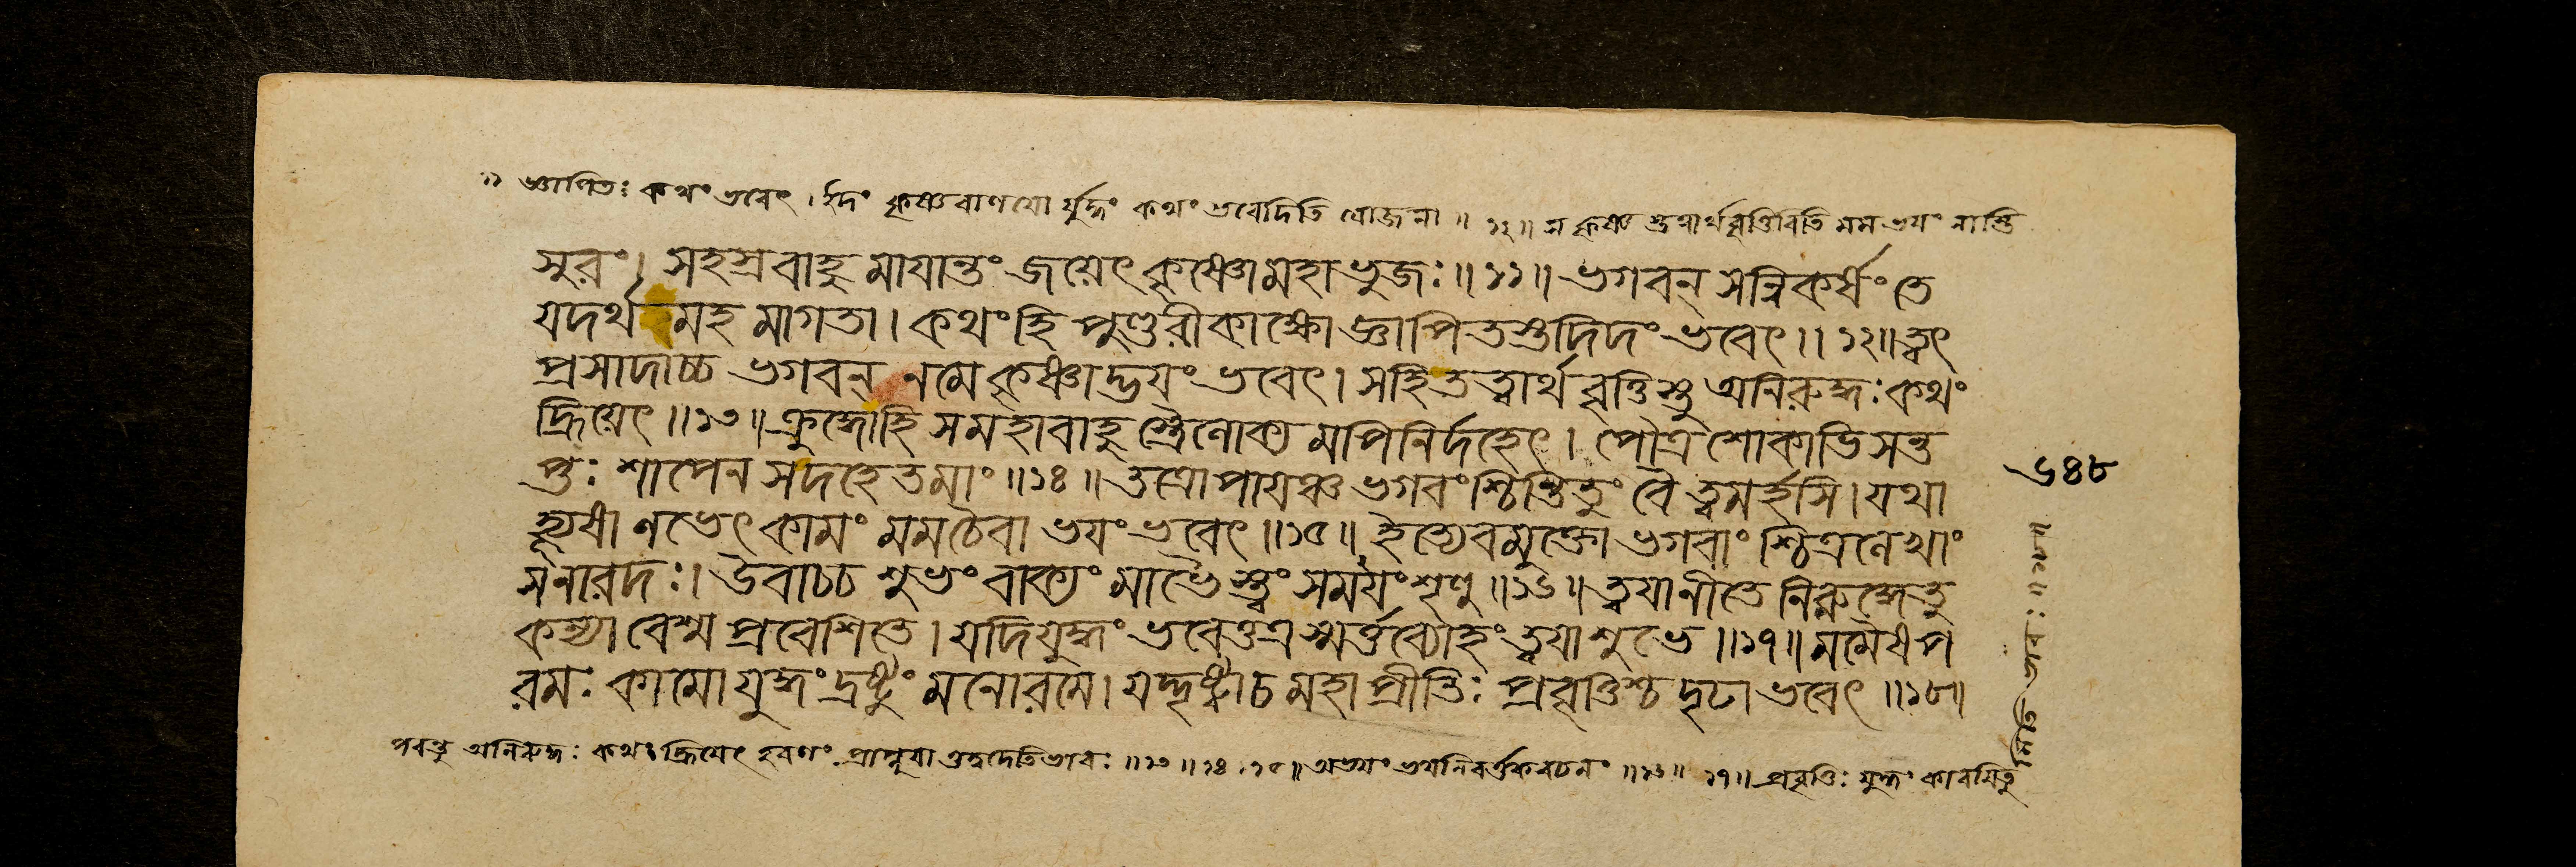 ১১ জ্ঞাপিতঃ কথং ভবেৎ । ইদং কৃষ্ণবাণয়ো র্যুদ্ধং কথং ভবেদিতি যোজনা ॥ ১২॥ স কৃষ্ণ স্তত্বার্থবৃত্তিরিতি মম ভযং নাস্তি
সুরং। সহস্রবাহু মাযান্তং জয়েৎ কৃষ্ণোমহাভুজঃ॥১১॥ ভগবন্ সন্নিকর্ষং তে
যদর্থ মহ মাগতা। কথং হি পুণ্ডরীকাক্ষো জ্ঞাপিতস্তদিদং ভবেৎ।। ১২॥ ত্বৎ
প্রসাদাচ্চ ভগবন্ নমে কৃষ্ণাদ্ভযং ভবেৎ। সহি তত্বার্থ বৃত্তিস্তু অনিরুদ্ধঃ কথং
হ্রিয়েৎ ॥১৩॥ ক্রুদ্ধোহি স মহাবাহু স্ত্রৈলোক্য মপি নির্দহেৎ। পৌত্র শোকাভিসন্ত
প্তঃ শাপেন স দহেতমাং ॥১৪॥ তত্রোপাযঞ্চ ভগবংশ্চিন্তিতুং বৈ ত্বমর্হসি। যথা
হ্যুষা লভেৎ কামং মমচৈবা ভযং ভবেৎ ॥১৫॥ ইত্যেবমুক্তো ভগবাং শ্চিত্রলেখাং
সনারদঃ। উবাচচ শুভং বাক্যং মাভৈ স্ত্বং সময়ং শৃণু ॥১৬॥ ত্বযা নীতে নিরুদ্ধেতু
কন্যা বেশ্ম প্রবেশিতে। যদি যুদ্ধং ভবেত্তত্র স্মর্ত্তব্যোহং ত্বযা শুভে ॥১৭॥ মমৈষ প
রমঃ কামো যুদ্ধং দ্রষ্টুং মনোরমে। যদ্দৃষ্ট্বাচ মহাপ্রীতিঃ প্রবৃত্তিশ্চ দৃঢা ভবেৎ ॥১৮॥
পরন্তু অনিরুদ্ধঃ কথং হ্রিয়েৎ হরণং প্রাপ্নুযা ত্তদ্বদেতিভাবঃ ॥১৩॥১৪।১৫॥ অভযং ভযনিবর্ত্তকবচনং ॥১৬॥ ১৭॥ প্রবৃত্তিঃ যুদ্ধং কারযিতু
মিতি ভাবঃ ॥১৮॥
৬৪৮